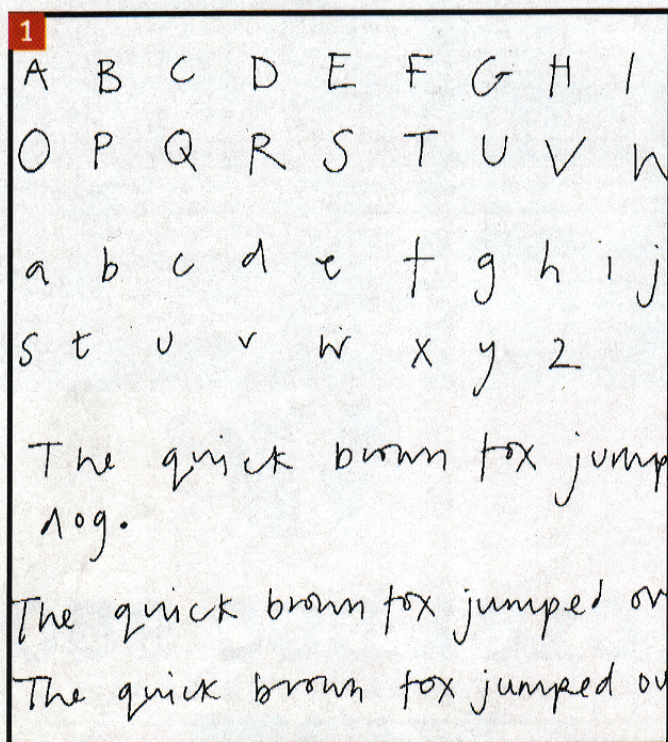 1
A B C D E F G H I
O P Q R S T U V
a b c d e f g h i j
s t u v w x y z
The quick brown fox jump
dog.
The quick brown fox jumped ov
The quick brown fox jumped ov